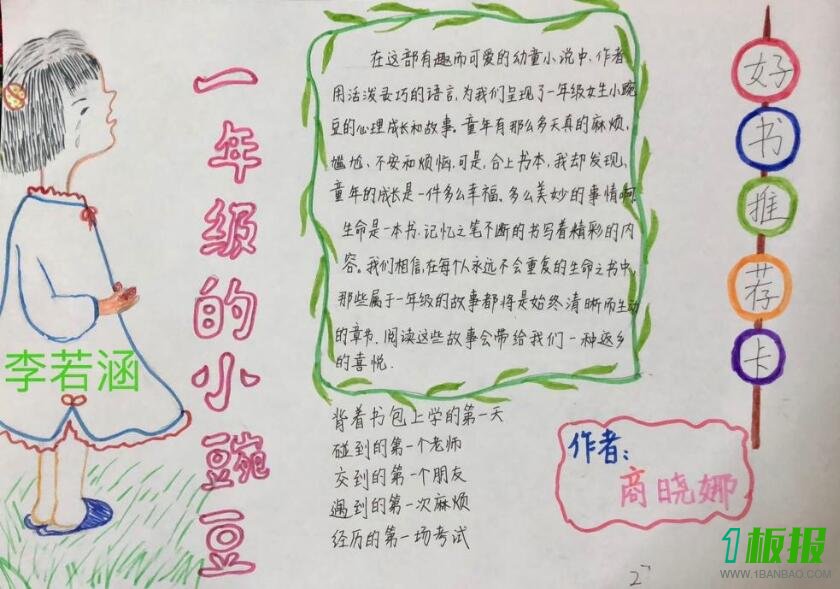 一年级的小豌豆
李若涵
在这部有趣而可爱的幼童小说中，作者
用活泼灵巧的语言，为我们呈现了一年级女生小豌
豆的心理成长和故事。童年有那么多天真的麻烦、
尴尬、不安和烦恼，可是，合上书本，我却发现，
童年的成长是一件多么幸福、多么美妙的事情啊
生命是一本书，记忆之笔不断的书写着精彩的内
容。我们相信，在每个人永远不会重复的生命之书中，
那些属于一年级的故事都将是始终清晰而生动
的章节，阅读这些故事会带给我们一种返乡
的喜悦．
背着书包上学的第一天
碰到的第一个老师
交到的第一个朋友
遇到的第一次麻烦
经历的第一场考试
好书推荐卡
作者：
商晓娜
1板报
WWW.1BANBAO.COM